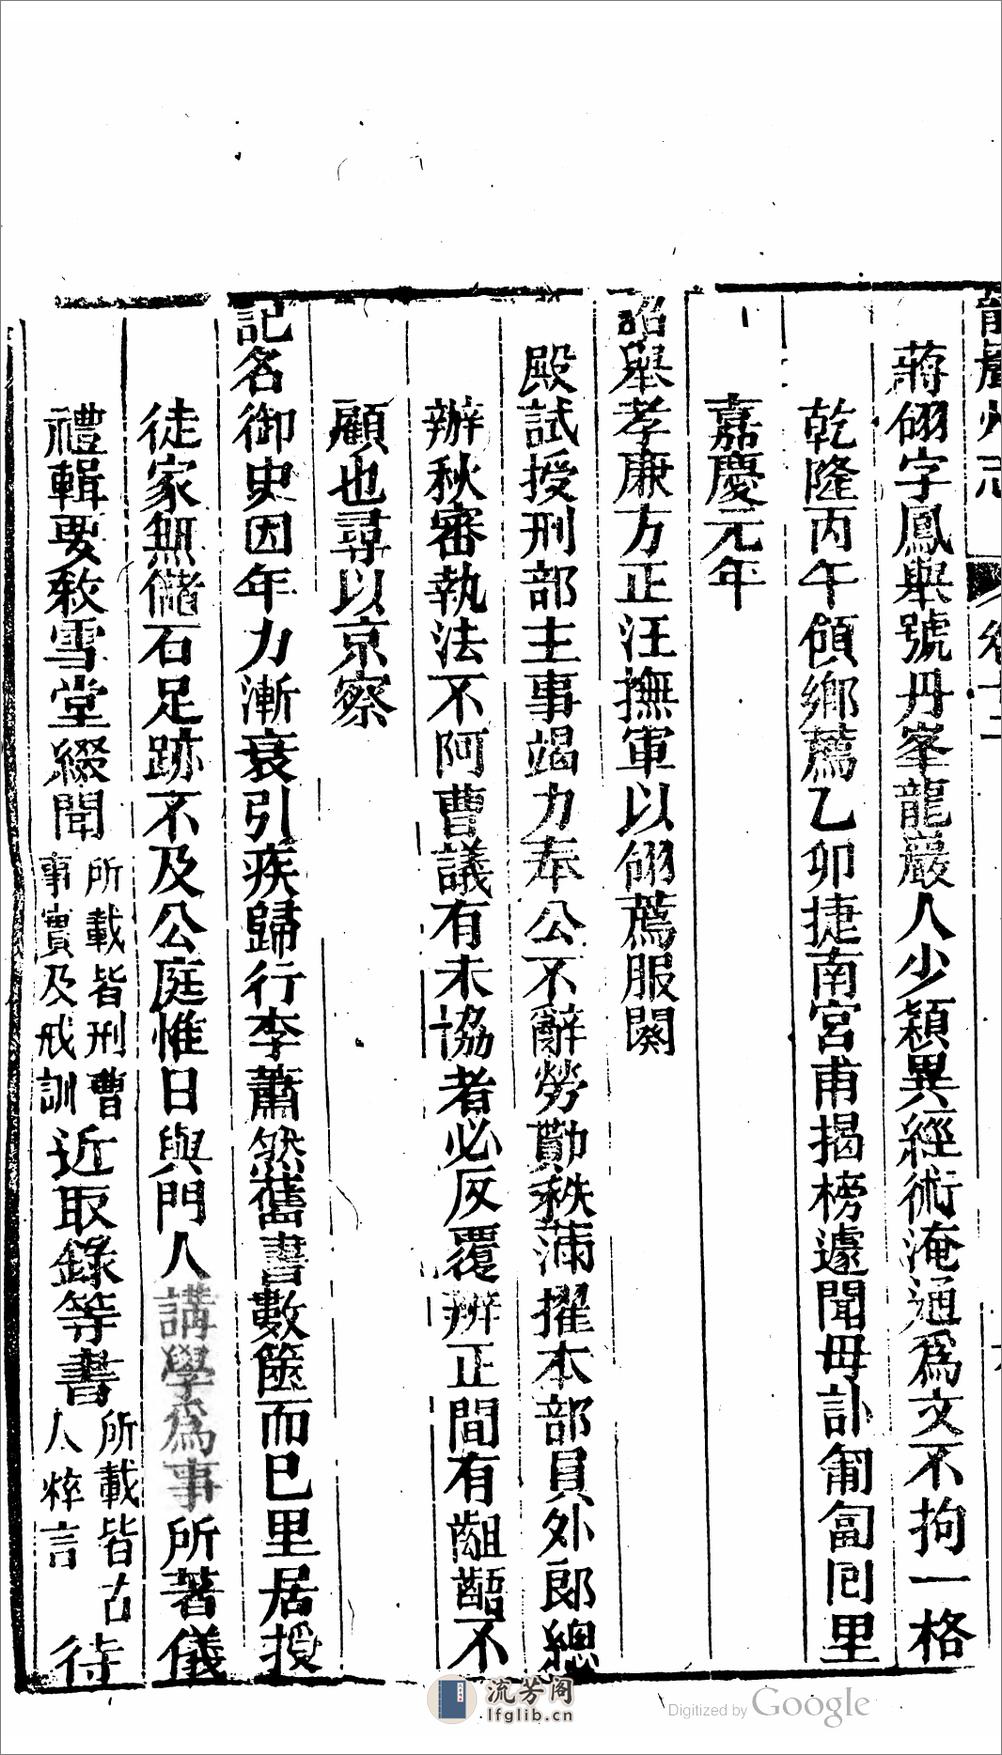 龍巖州志 卷十二
蔣翃字鳳舉號丹峯龍巖人少穎異經術淹通爲文不拘一格
乾隆丙午領鄉薦乙卯捷南宮甫揭榜遽聞母訃匍匐回里
嘉慶元年
詔舉孝廉方正汪撫軍以翃薦服闋
殿試授刑部主事竭力奉公不辭勞勩秩滿擢本部員外郎總
辦秋審執法不阿曹議有未協者必反覆辨正間有齟齬不
顧也尋以京察
記名御史因年力漸衰引疾歸行李蕭然舊書數篋而已里居授
徒家無儲石足跡不及公庭惟日與門人講學爲事所著儀
禮輯要敎雪堂綴聞所載皆刑曹事實及戒訓近取錄等書所載皆古人粹言待
流芳阁
lfglib.cn
Digitized by Google